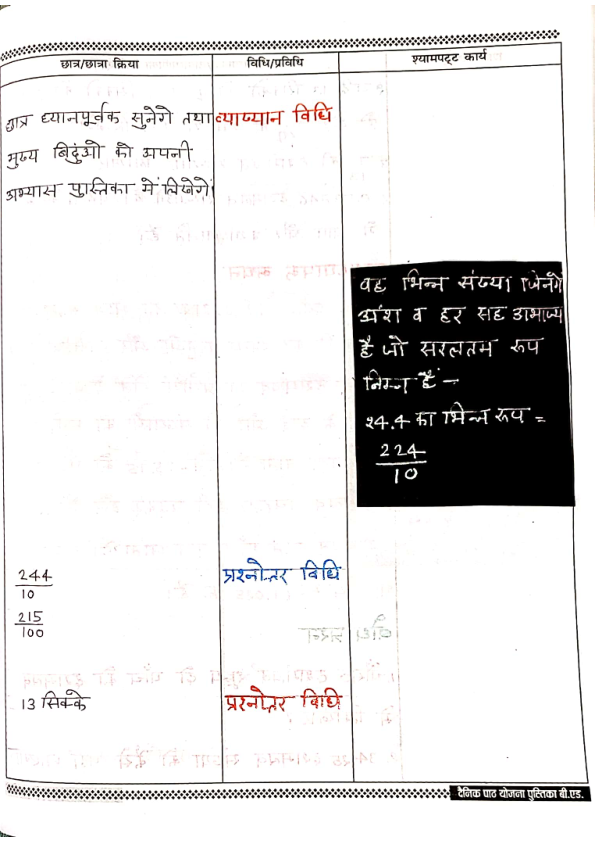 छात्र/छात्रा क्रिया
विधि/प्रविधि
श्यामपट्ट कार्य
छात्र ध्यानपूर्वक सुनेगे तथा
मुख्य बिदुंओ को अपनी
अभ्यास पुस्तिका में लिखेगें
व्याख्यान विधि
वह भिन्न संख्या जिनगे
अंश व हर सह अभाज्य
है जो सरलतम रूप
निम्न हैं –
24.4 का भिन्न रूप =
224
10
244
10
215
100
प्रश्नोत्तर विधि
13 सिक्के
प्रश्नोत्तर विधि
दैनिक पाठ योजना पुस्तिका बी.एड.